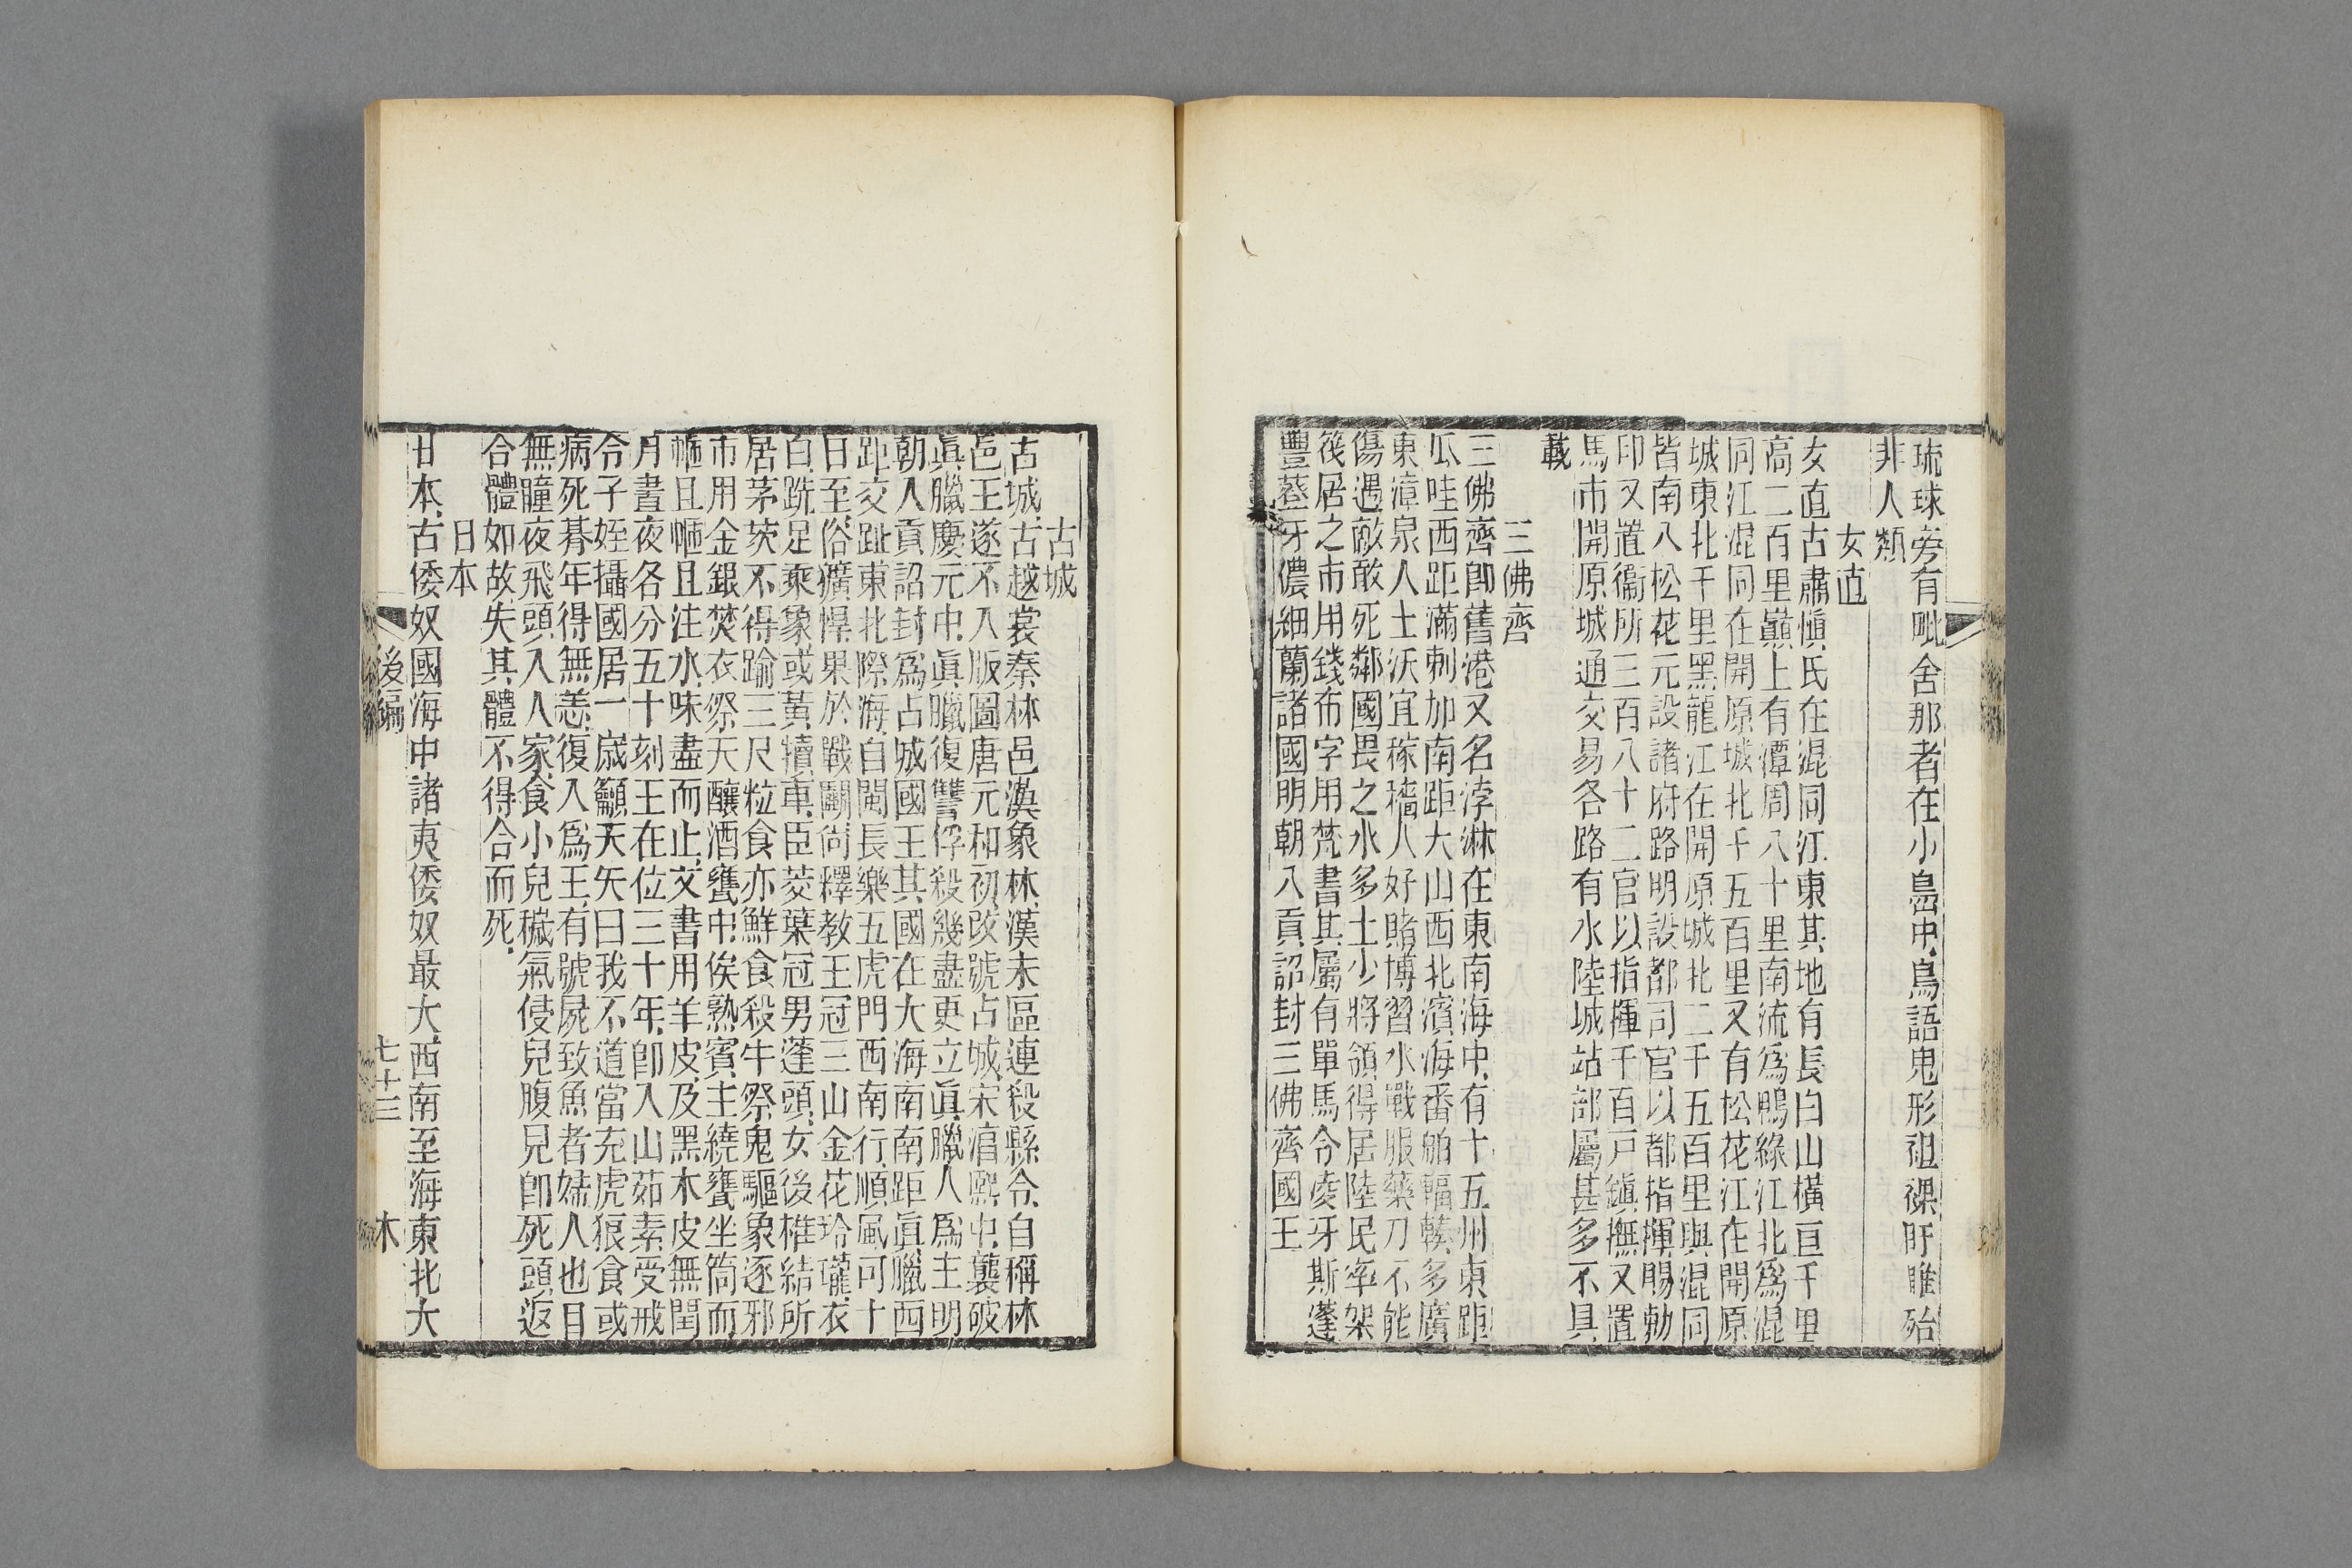 琉球旁有毗舍那者在小島中鳥語鬼形袒裸盱睢殆
非人類
女直
女直古肅愼氏在混同江東其地有長白山橫亘千里
高二百里巔上有潭周八十里南流爲鴨綠江北爲混
同江混同在開原城北千五百里又有松花江在開原
城東北千里黑龍江在開原城北二千五百里與混同
皆南八松花元設諸府路明設都司官以都指揮賜勅
印又置衞所三百八十二官以指揮千百戶鎭撫又置
馬市開原城通交易各路有水陸城站部屬甚多不具
載
三佛齊
三佛齊卽舊港又名浡淋在東南海中有十五州東距
瓜哇西距滿剌加南距大山西北濱海番舶輻輳多廣
東漳泉人土沃宜稼穡人好賭博習水戰服藥刀不能
傷遇敵敢死鄰國畏之水多土少將領得居陸民率架
筏居之市用錢布字用梵書其屬有單馬令凌牙斯蓬
豐葢牙儂細蘭諸國明朝入貢詔封三佛齊國王
古城
古城古越裳秦林邑漢象林漢末區連殺縣令自稱林
邑王遂不入版圖唐元和初改號占城宋淳熙中襲破
眞臘慶元中眞臘復讐俘殺幾盡更立眞臘人爲主明
朝人貢詔封爲占城國王其國在大海南南距眞臘西
距交趾東北際海自閩長樂五虎門西南行順風可十
日至俗獷悍果於戰鬬尙釋教王冠三山金花玲瓏衣
白跣足乘象或黃犢車臣茭葉冠男蓬頭女後椎結所
居茅茨不得踰三尺粒食亦鮮食殺牛祭鬼驅象逐邪
市用金銀焚衣祭天釀酒甕中俟熟賓主繞甕坐筒而
𠯗且𠯗且注水味盡而止文書用羊皮及黑木皮無閏
月晝夜各分五十刻王在位三十年卽入山茹素受戒
令子姪攝國居一歲籲天矢曰我不道當充虎狼食或
病死朞年得無恙復入爲王有號屍致魚者婦人也目
無瞳夜飛頭入人家食小兒穢氣侵兒腹兒卽死頭返
合體如故失其體不得合而死
日本
日本古倭奴國海中諸夷倭奴最大西南至海東北大
後編
七十三
木